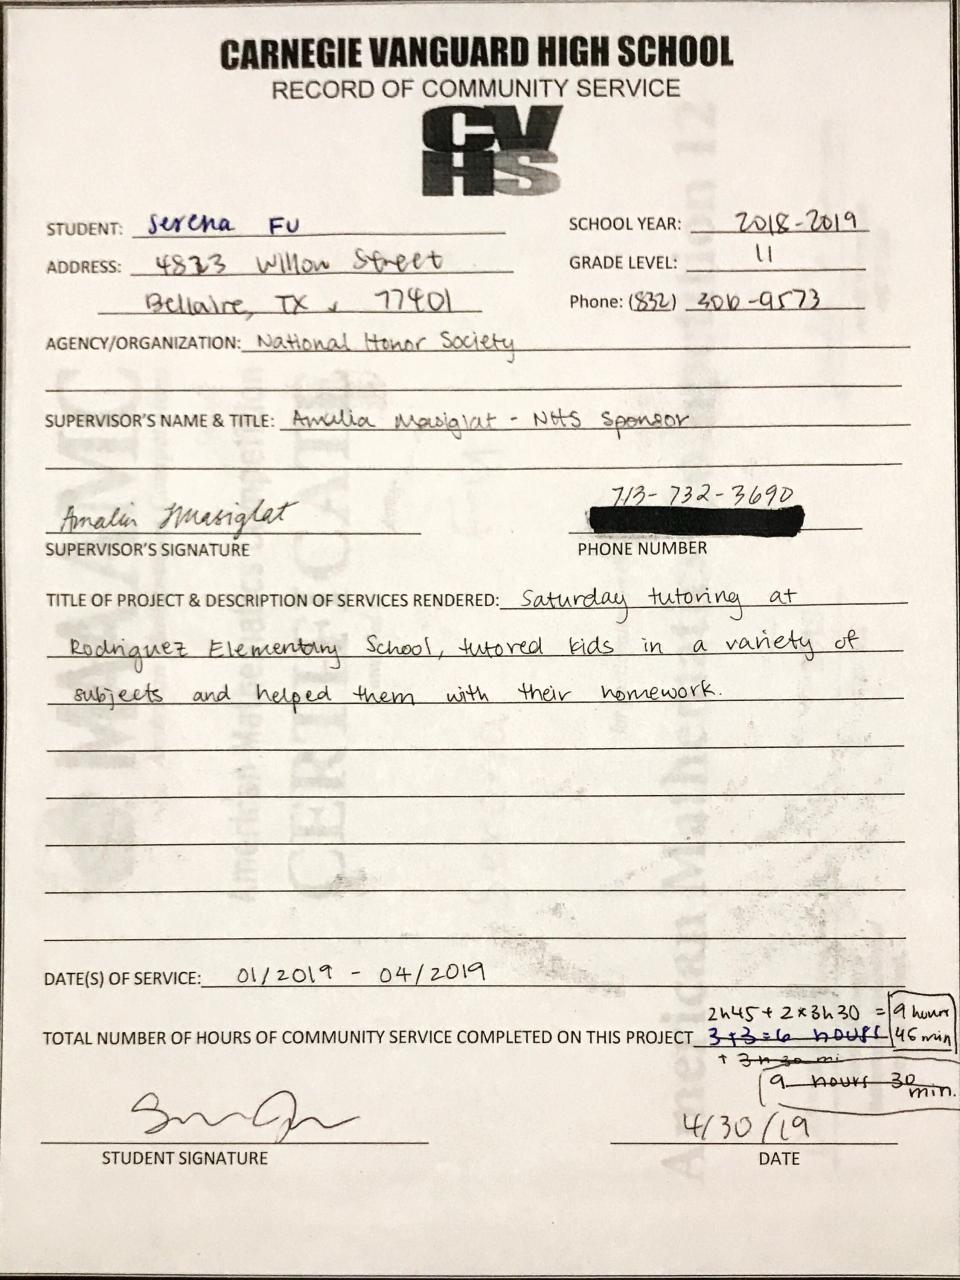 CARNEGIE VANGUARD HIGH SCHOOL
RECORD OF COMMUNITY SERVICE
CV
HS
STUDENT: Serena Fu
SCHOOL YEAR: 2018-2019
ADDRESS: 4823 Willow Street
GRADE LEVEL: 11
Bellaire, TX, 77401
Phone: (832) 306-9573
AGENCY/ORGANIZATION: National Honor Society
SUPERVISOR'S NAME & TITLE: Amelia Masiglat - NHS Sponsor
713-732-3690
Amalin Masiglat
SUPERVISOR'S SIGNATURE
PHONE NUMBER
TITLE OF PROJECT & DESCRIPTION OF SERVICES RENDERED: Saturday tutoring at
Rodriguez Elementary School, tutored kids in a variety of
subjects and helped them with their homework.
DATE(S) OF SERVICE: 01/2019 - 04/2019
2h45 + 2x3h30 = 9 hours 45 min
TOTAL NUMBER OF HOURS OF COMMUNITY SERVICE COMPLETED ON THIS PROJECT 3+3=6 hours
+ 3h 30 mi
9 hours 30 min.
4/30/19
STUDENT SIGNATURE
DATE